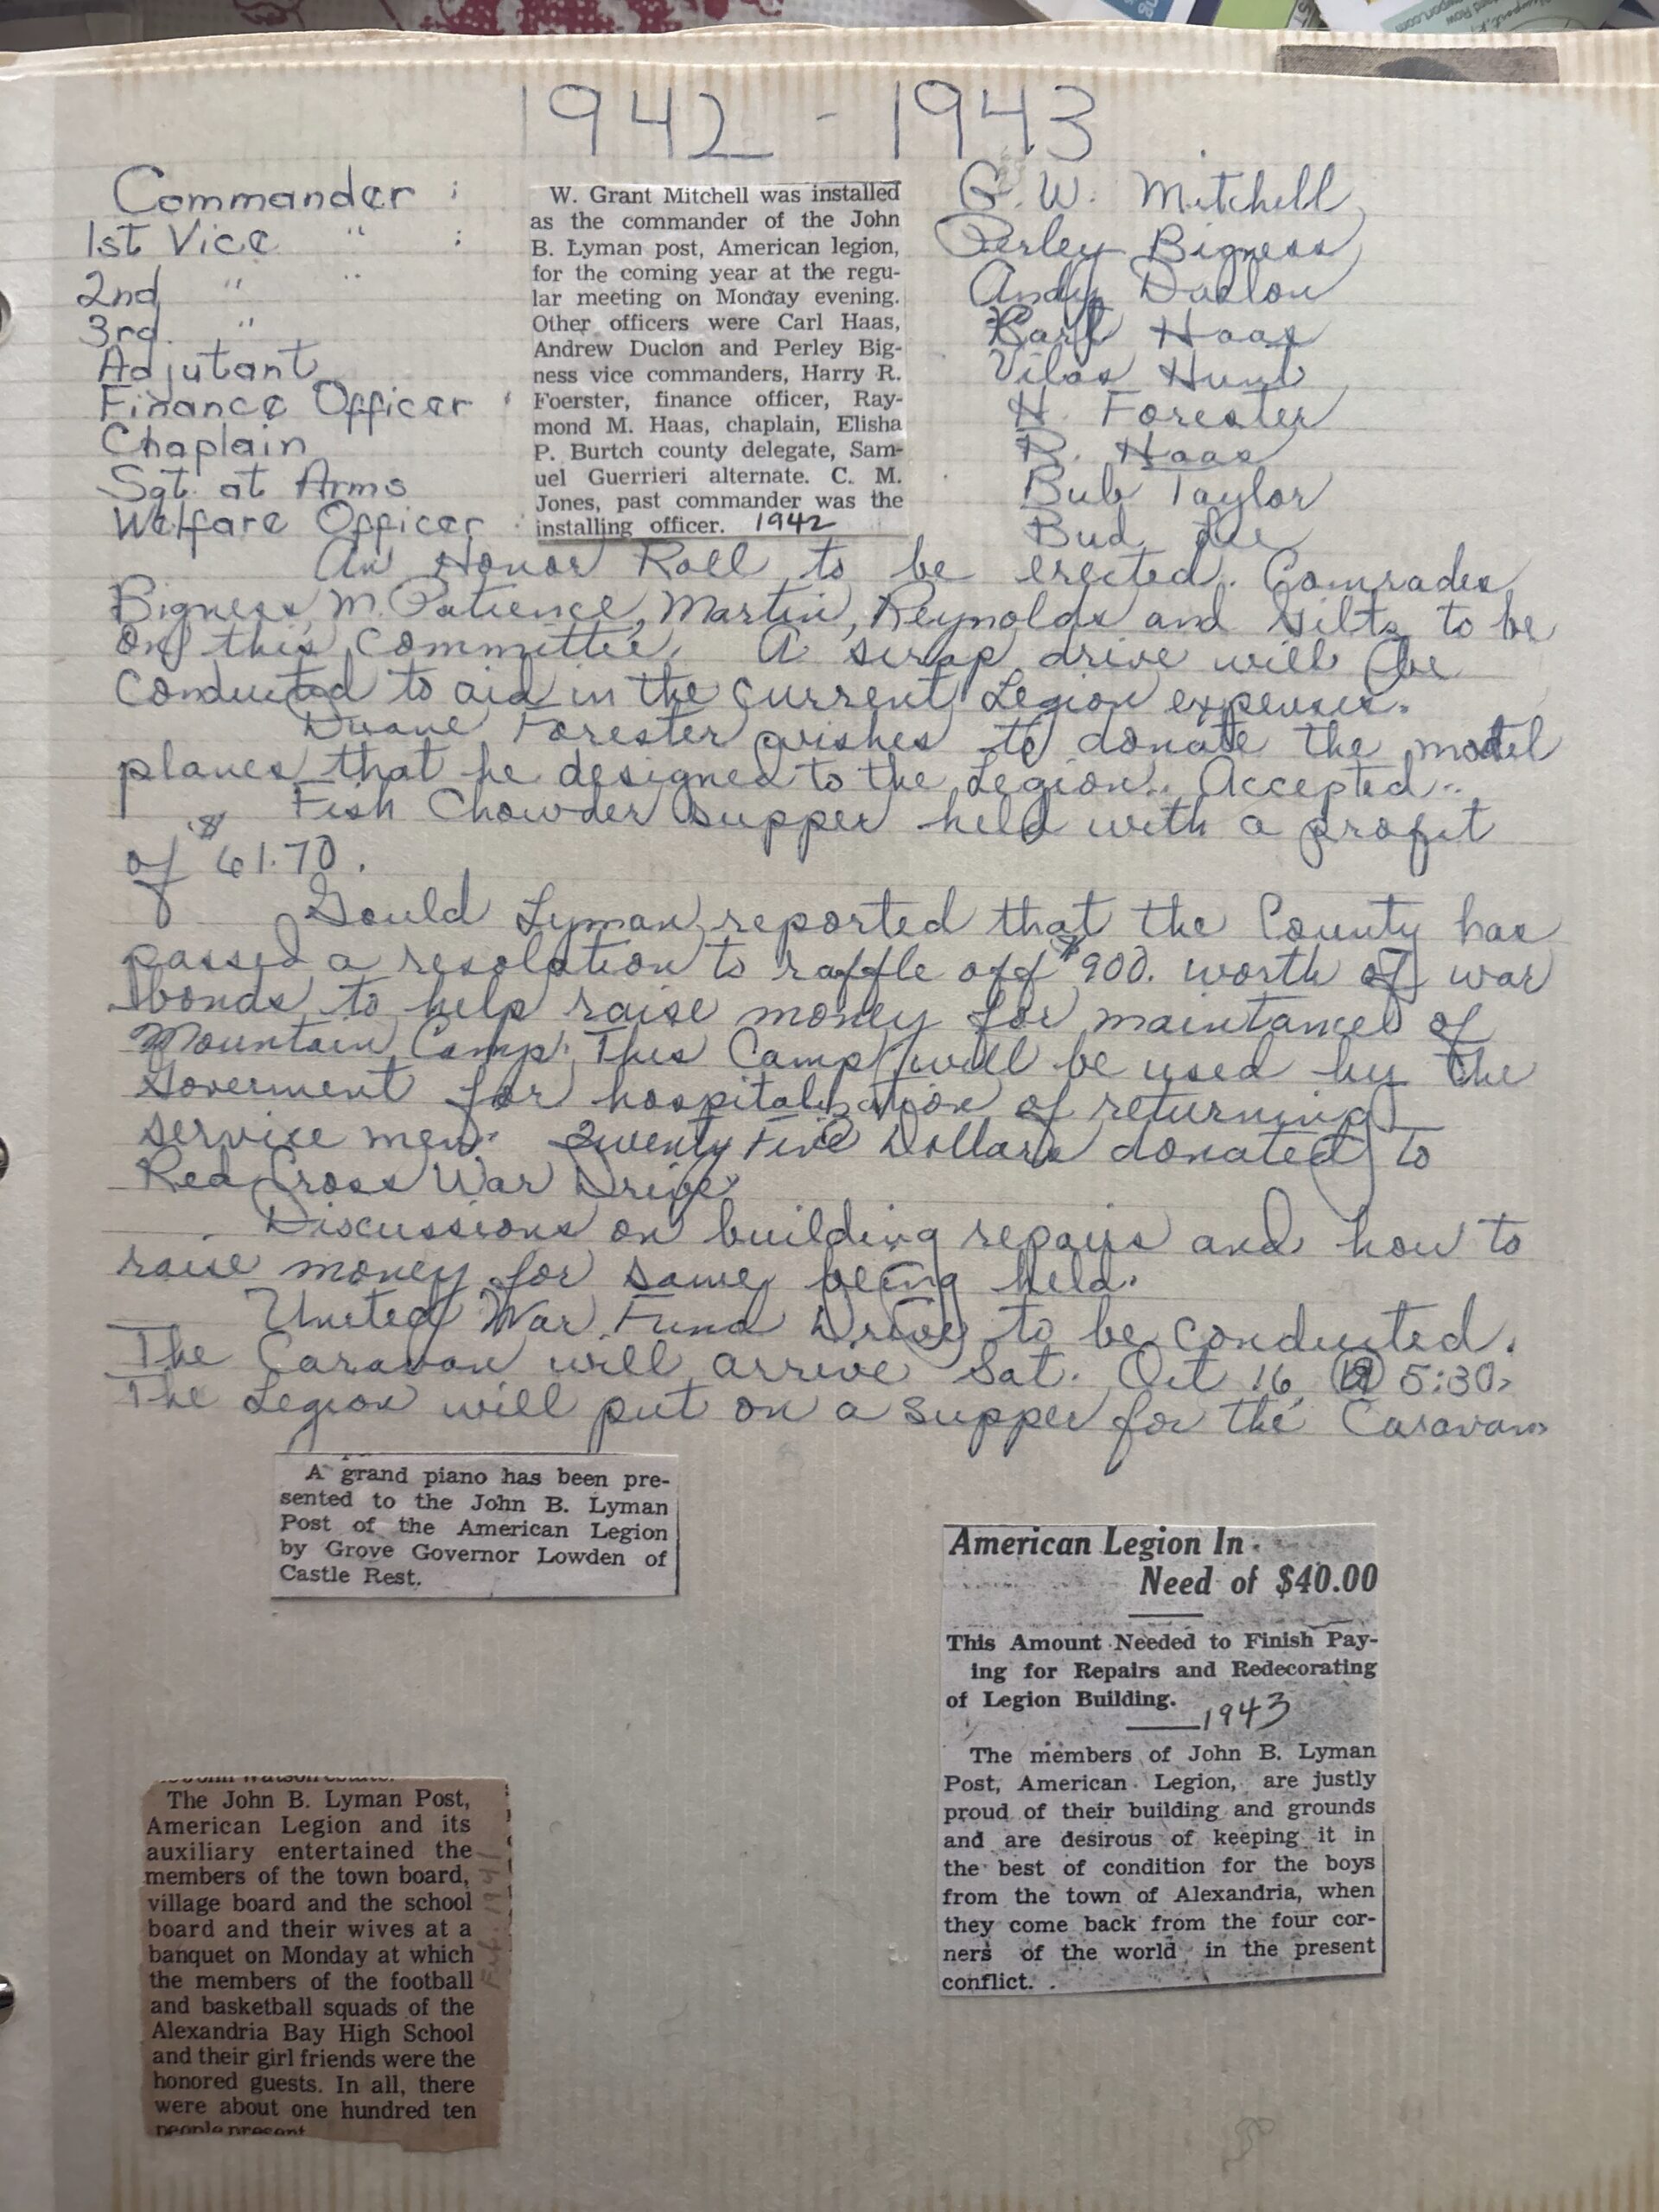 1942 - 1943
Commander :
1st Vice " :
2nd " "
3rd "
Adjutant
Finance Officer
Chaplain
Sgt. at Arms
Welfare Officer
W. Grant Mitchell was installed
as the commander of the John
B. Lyman post, American legion,
for the coming year at the regu-
lar meeting on Monday evening.
Other officers were Carl Haas,
Andrew Duclon and Perley Big-
ness vice commanders, Harry R.
Foerster, finance officer, Ray-
mond M. Haas, chaplain, Elisha
P. Burtch county delegate, Sam-
uel Guerrieri alternate. C. M.
Jones, past commander was the
installing officer. 1942
G. W. Mitchell
Perley Bigness
Andy Duclon
Karl Haas
Vilas Hunt
H. Forester
R. Haas
Bub Taylor
Bud Lee
An Honor Roll to be erected. Comrades
Bigness, M. Patience, Martin, Reynolds and Giltz to be
on this committee. A scrap drive will be
conducted to aid in the current Legion expenses.
Duane Forester wishes to donate the model
planes that he designed to the Legion. Accepted..
Fish Chowder supper held with a profit
of $61.70.
Gould Lyman reported that the County has
passed a resolution to raffle off $900. worth of war
bonds to help raise money for maintance of
Mountain Camp. This Camp will be used by the
Goverment for hospitalization of returning
service men. Twenty Five Dollars donated to
Red Cross War Drive.
Discussions on building repairs and how to
raise money for same being held.
United War Fund Drive to be conducted.
The Caravan will arrive Sat. Oct 16 @ 5:30.
The Legion will put on a supper for the Caravan
A grand piano has been pre-
sented to the John B. Lyman
Post of the American Legion
by Grove Governor Lowden of
Castle Rest.
American Legion In
Need of $40.00
This Amount Needed to Finish Pay-
ing for Repairs and Redecorating
of Legion Building.
1943
The members of John B. Lyman
Post, American Legion, are justly
proud of their building and grounds
and are desirous of keeping it in
the best of condition for the boys
from the town of Alexandria, when
they come back from the four cor-
ners of the world in the present
conflict.
John Watson estate.
The John B. Lyman Post,
American Legion and its
auxiliary entertained the
members of the town board,
village board and the school
board and their wives at a
banquet on Monday at which
the members of the football
and basketball squads of the
Alexandria Bay High School
and their girl friends were the
honored guests. In all, there
were about one hundred ten
people present